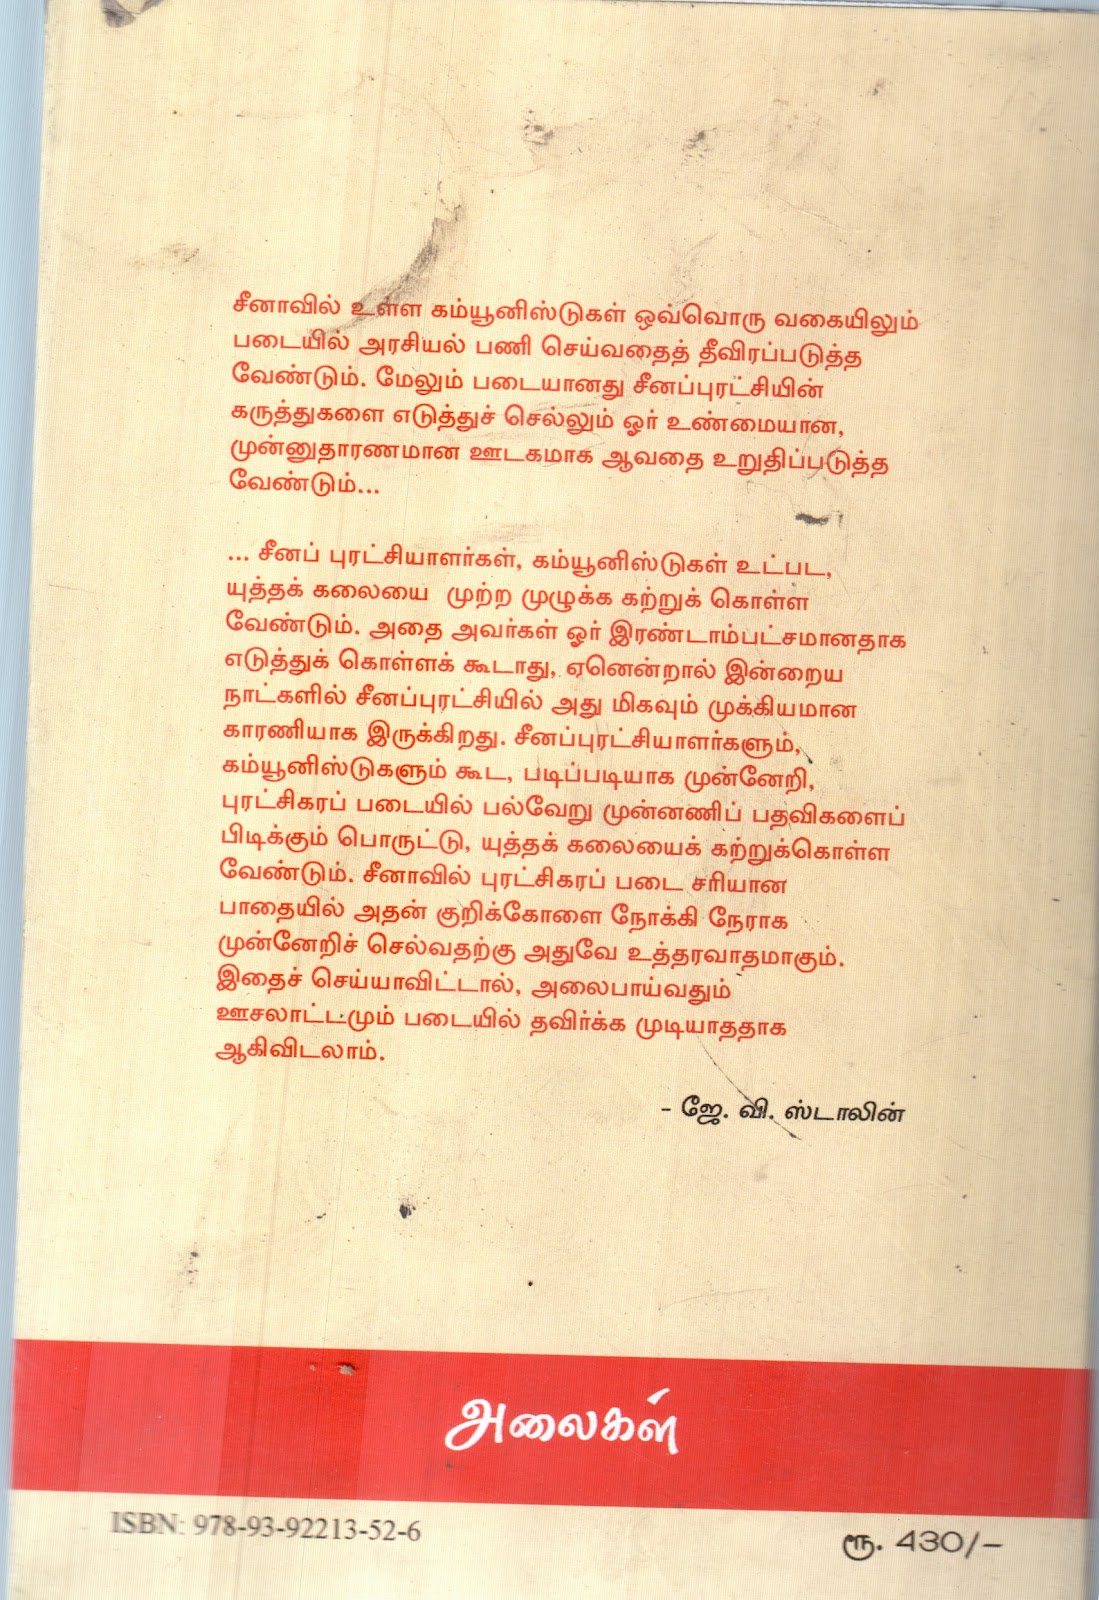 சீனாவில் உள்ள கம்யூனிஸ்டுகள் ஒவ்வொரு வகையிலும்
படையில் அரசியல் பணி செய்வதைத் தீவிரப்படுத்த
வேண்டும். மேலும் படையானது சீனப்புரட்சியின்
கருத்துகளை எடுத்துச் செல்லும் ஓர் உண்மையான,
முன்னுதாரணமான ஊடகமாக ஆவதை உறுதிப்படுத்த
வேண்டும்...
... சீனப் புரட்சியாளர்கள், கம்யூனிஸ்டுகள் உட்பட,
யுத்தக் கலையை முற்ற முழுக்க கற்றுக் கொள்ள
வேண்டும். அதை அவர்கள் ஓர் இரண்டாம்பட்சமானதாக
எடுத்துக் கொள்ளக் கூடாது, ஏனென்றால் இன்றைய
நாட்களில் சீனப்புரட்சியில் அது மிகவும் முக்கியமான
காரணியாக இருக்கிறது. சீனப்புரட்சியாளர்களும்,
கம்யூனிஸ்டுகளும் கூட, படிப்படியாக முன்னேறி,
புரட்சிகரப் படையில் பல்வேறு முன்னணிப் பதவிகளைப்
பிடிக்கும் பொருட்டு, யுத்தக் கலையைக் கற்றுக்கொள்ள
வேண்டும். சீனாவில் புரட்சிகரப் படை சரியான
பாதையில் அதன் குறிக்கோளை நோக்கி நேராக
முன்னேறிச் செல்வதற்கு அதுவே உத்தரவாதமாகும்.
இதைச் செய்யாவிட்டால், அலைபாய்வதும்
ஊசலாட்டமும் படையில் தவிர்க்க முடியாததாக
ஆகிவிடலாம்.
- ஜே. வி. ஸ்டாலின்
அலைகள்
ISBN: 978-93-92213-52-6
ரூ. 430/-